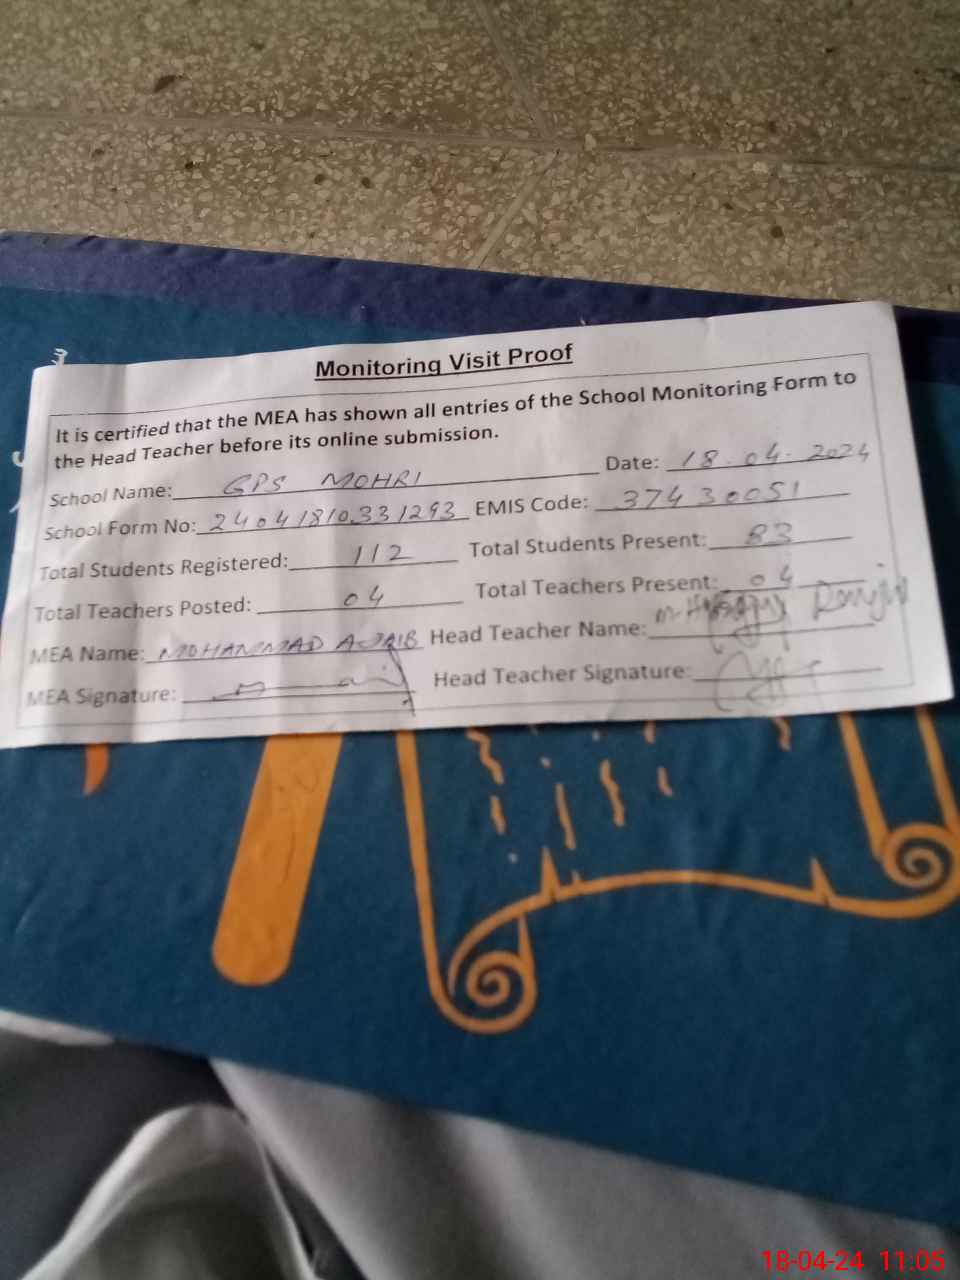 Monitoring Visit Proof
It is certified that the MEA has shown all entries of the School Monitoring Form to
the Head Teacher before its online submission.
School Name: GPS MOHRI Date: 18.04.2024
School Form No: 24041810331293 EMIS Code: 37430051
Total Students Registered: 112 Total Students Present: 83
Total Teachers Posted: 04 Total Teachers Present: 04
MEA Name: MOHAMMAD AJAIB Head Teacher Name:
MEA Signature: Head Teacher Signature:
18-04-24 11:05